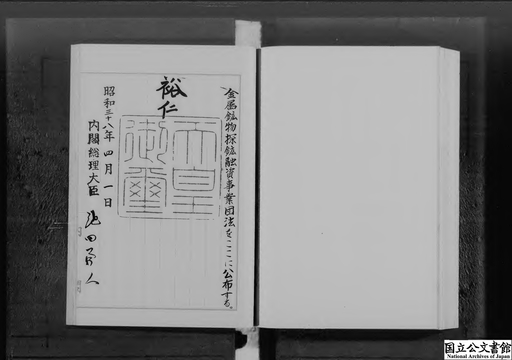 金属鉱物探鉱融資事業団法をここに公布する。
裕仁
天皇
御璽
昭和三十八年四月一日
内閣総理大臣 池田勇人
国立公文書館
National Archives of Japan